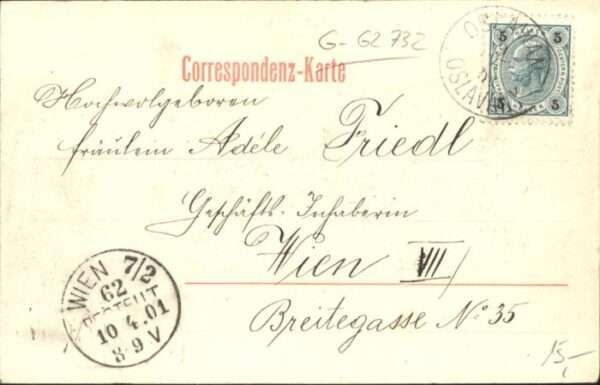 G-62732
Correspondenz-Karte
OSLAVAN
OSLAVAN
5 5
5 5
Hochwolgeboren
fräulein Adéle Friedl
Geschäfts-Inhaberin
Wien VII/
Breitegasse No 35
WIEN 7/2
62
BESTELLT
10 4.01
8-9V
15,-